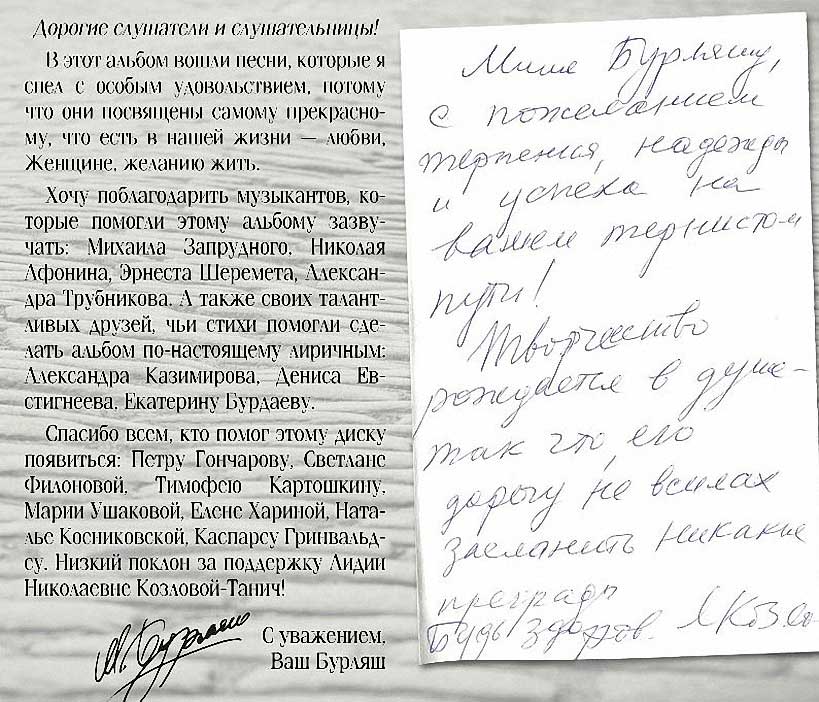 Дорогие слушатели и слушательницы!
В этот альбом вошли песни, которые я
спел с особым удовольствием, потому
что они посвящены самому прекрасно-
му, что есть в нашей жизни — любви,
Женщине, желанию жить.
Хочу поблагодарить музыкантов, ко-
торые помогли этому альбому зазву-
чать: Михаила Запрудного, Николая
Афонина, Эрнеста Шеремета, Алексан-
дра Трубникова. А также своих талант-
ливых друзей, чьи стихи помогли сде-
лать альбом по-настоящему лиричным:
Александра Казимирова, Дениса Ев-
стигнеева, Екатерину Бурдаеву.
Спасибо всем, кто помог этому диску
появиться: Петру Гончарову, Светлане
Филоновой, Тимофею Картошкину,
Марии Ушаковой, Елене Хариной, Ната-
лье Косниковской, Каспарсу Гринвальд-
су. Низкий поклон за поддержку Лидии
Николаевне Козловой-Танич!
С уважением,
Ваш Бурляш
Мише Бурляшу,
с пожеланием
терпения, надежды
и успеха на
вашем тернистом
пути!
Творчество
рождается в душе -
так что, его
дорогу не в силах
заслонить никакие
преграды
Будь здоров.